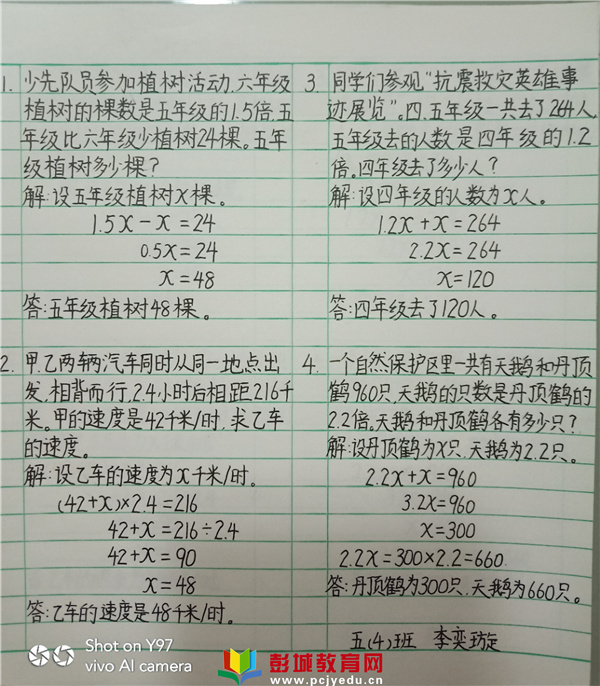 1. 少先队员参加植树活动,六年级
植树的棵数是五年级的1.5倍,五
年级比六年级少植树24棵。五年
级植树多少棵?
解:设五年级植树x棵。
1.5x-x=24
0.5x=24
x=48
答:五年级植树48棵。
2. 甲、乙两辆汽车同时从同一地点出
发,相背而行,2.4小时后相距216千
米。甲的速度是42千米/时,求乙车
的速度。
解:设乙车的速度为x千米/时。
(42+x)×2.4=216
42+x=216÷2.4
42+x=90
x=48
答:乙车的速度是48千米/时。
3. 同学们参观“抗震救灾英雄事
迹展览”。四、五年级一共去了264人,
五年级去的人数是四年级的1.2
倍。四年级去了多少人?
解:设四年级的人数为x人。
1.2x+x=264
2.2x=264
x=120
答:四年级去了120人。
4. 一个自然保护区里一共有天鹅和丹顶
鹤960只,天鹅的只数是丹顶鹤的
2.2倍。天鹅和丹顶鹤各有多少只?
解:设丹顶鹤为x只,天鹅为2.2只。
2.2x+x=960
3.2x=960
x=300
2.2x=300×2.2=660.
答:丹顶鹤为300只,天鹅为660只。
五(4)班 李奕璇
Shot on Y97
vivo AI camera
彭城教育网
www.pcjyedu.cn